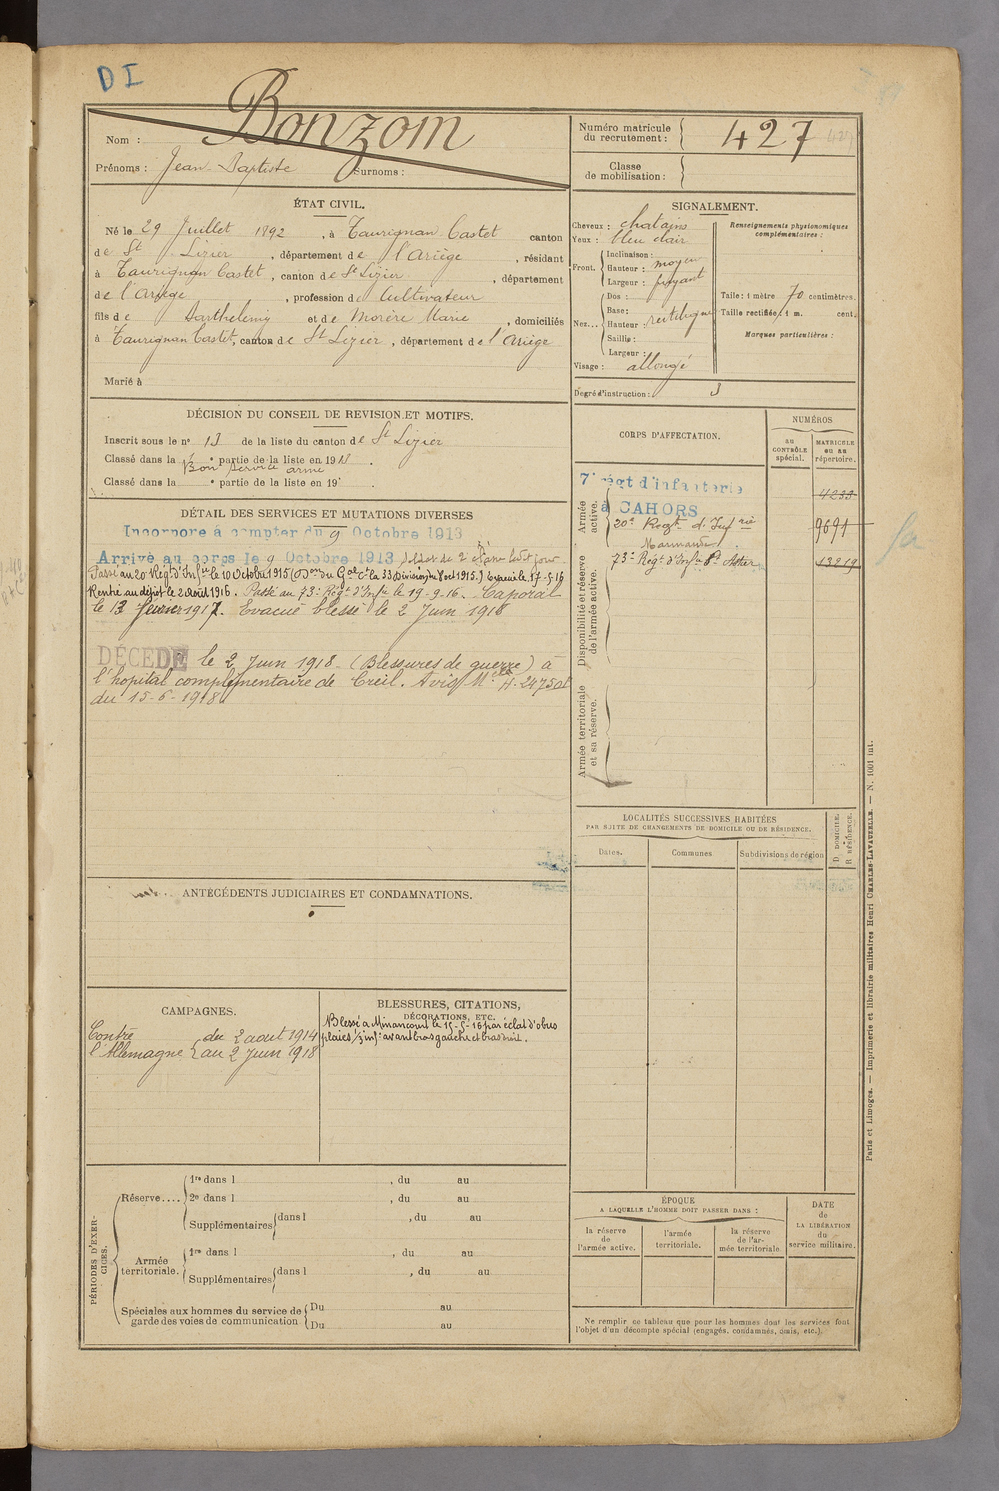 DI
Nom : Bonzom
Prénoms : Jean Baptiste Surnoms :
Numéro matricule du recrutement : 427 427
Classe de mobilisation :
ÉTAT CIVIL.
Né le 29 Juillet 1892, à Taurignan Castet canton
de St Lizier, département de l'Ariège, résidant
à Taurignan Castet, canton de St Lizier, département
de l'Ariège, profession de Cultivateur
fils de Barthélemy et de Morère Marie, domiciliés
à Taurignan Castet, canton de St Lizier, département de l'Ariège
Marié à
SIGNALEMENT.
Cheveux : chatains
Yeux : bleu clair
Front. Inclinaison :
Hauteur : moyen
Largeur : fuyant
Nez... Dos :
Base :
Hauteur : rectiligne
Saillie :
Largeur :
Visage : allongé
Renseignements physionomiques complémentaires :
Taille : 1 mètre 70 centimètres.
Taille rectifiée : 1 m. cent.
Marques particulières :
Degré d'instruction : 3
DÉCISION DU CONSEIL DE REVISION ET MOTIFS.
Inscrit sous le n° 13 de la liste du canton de St Lizier
Classé dans la 1 e partie de la liste en 191
Bon service armé
Classé dans la e partie de la liste en 19
CORPS D'AFFECTATION.
NUMÉROS
au CONTRÔLE spécial.
MATRICULE ou au répertoire.
Armée active.
7e régt d'infanterie
à CAHORS 4233
20e Regt d'Infrie 9691
Marmande
Disponibilité et réserve de l'armée active.
73e Régt d'Infie 13219
Armée territoriale et sa réserve.
DÉTAIL DES SERVICES ET MUTATIONS DIVERSES
Incorporé à compter du 9 Octobre 1913
Arrivé au corps le 9 Octobre 1913 Soldat de 2e classe ledit jour
Passé au 20 Régt d'Infie le 10 Octobre 1915 (Don du Gal Ct la 33 Division du 8 oct 1915.) Evacué le 17-5-16
Rentré au dépôt le 2 Août 1916. Passé au 73e Régt d'Infie le 19-9-16. Caporal
le 13 février 1917. Evacué blessé le 2 Juin 1918
DÉCÉDÉ le 2 Juin 1918 - (Blessures de guerre) à
l'hopital complémentaire de Creil. Avis Mel H. 2475
du 15-6-1918
LOCALITÉS SUCCESSIVES HABITÉES
PAR SUITE DE CHANGEMENTS DE DOMICILE OU DE RÉSIDENCE.
Dates. Communes Subdivisions de région D DOMICILE. R RÉSIDENCE.
ANTÉCÉDENTS JUDICIAIRES ET CONDAMNATIONS.
CAMPAGNES.
Contre du 2 aout 1914
l'Allemagne au 2 Juin 1918
BLESSURES, CITATIONS, DÉCORATIONS, ETC.
Blessé à Minancourt le 15-5-16 par éclat d'obus
plaies 1/3 inf: avant bras gauche et bras droit.
PÉRIODES D'EXERCICES.
Réserve.... 1re dans l , du au
2e dans l , du au
Supplémentaires dans l , du au
Armée territoriale. 1re dans l , du au
Supplémentaires dans l , du au
Spéciales aux hommes du service de garde des voies de communication Du au
Du au
ÉPOQUE
A LAQUELLE L'HOMME DOIT PASSER DANS :
la réserve de l'armée active.
l'armée territoriale.
la réserve de l'armée territoriale
DATE de LA LIBÉRATION du service militaire.
Ne remplir ce tableau que pour les hommes dont les services font
l'objet d'un décompte spécial (engagés, condamnés, omis, etc.).
Paris et Limoges. — Imprimerie et librairie militaires Henri CHARLES-LAVAUZELLE. — N. 1001 int.